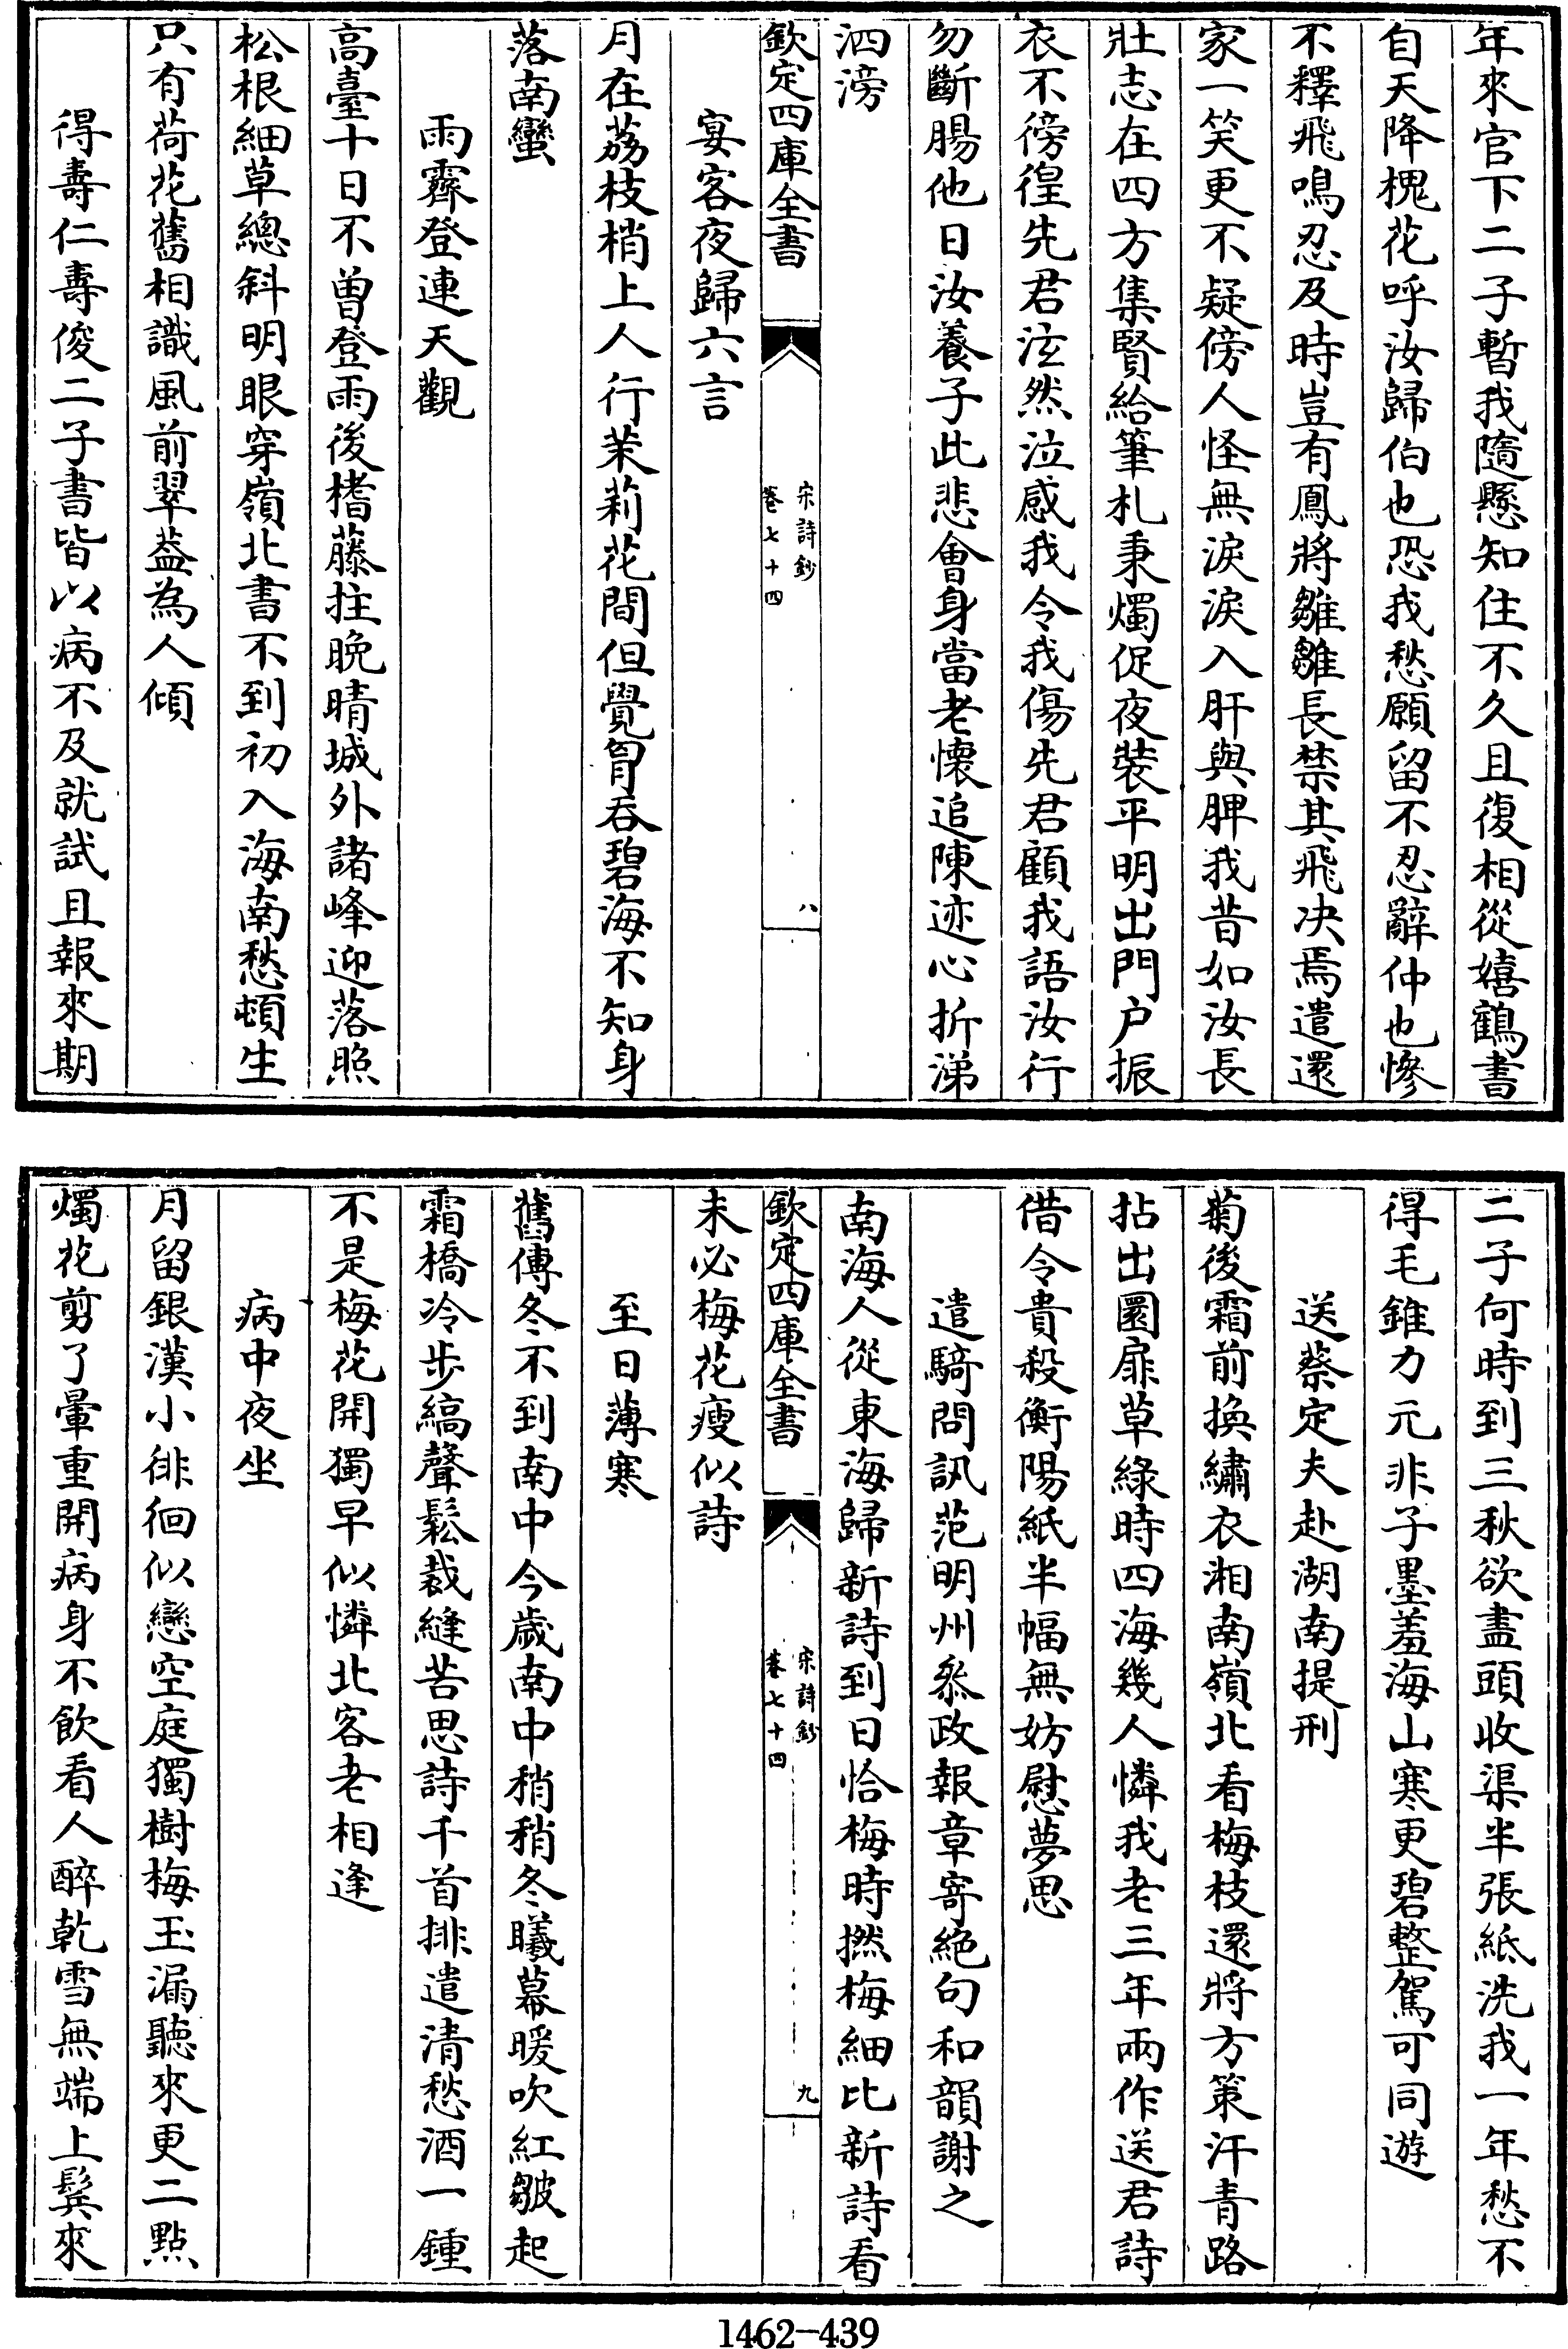 年來官下二子暫我隨懸知住不久且復相從嬉鶴書
自天降槐花呼汝歸伯也恐我愁願留不忍辭仲也慘
不釋飛鳴忍及時豈有鳳將雛雛長禁其飛決焉遣還
家一笑更不疑傍人怪無淚淚入肝與脾我昔如汝長
壯志在四方集賢給筆札秉燭促夜裝平明出門户振
衣不徬徨先君泫然泣感我令我傷先君顧我語汝行
勿斷腸他日汝養子此悲會身當老懷追陳迹心折涕
泗滂
欽定四庫全書
宋詩鈔
卷七十四
八
宴客夜歸六言
月在荔枝梢上人行茉莉花間但覺胷吞碧海不知身
落南蠻
雨霽登連天觀
高臺十日不曾登雨後榰藤拄晚晴城外諸峰迎落照
松根細草總斜明眼穿嶺北書不到初入海南愁頓生
只有荷花舊相識風前翠葢為人傾
得壽仁壽俊二子書皆以病不及就試且報來期
二子何時到三秋欲盡頭收渠半張紙洗我一年愁不
得毛錐力元非子墨羞海山寒更碧整駕可同遊
送蔡定夫赴湖南提刑
菊後霜前換繡衣湘南嶺北看梅枝還將方策汗青路
拈出圜扉草綠時四海幾人憐我老三年兩作送君詩
借令貴殺衡陽紙半幅無妨慰夢思
遣騎問訊范明州叅政報章寄絕句和韻謝之
南海人從東海歸新詩到日恰梅時撚梅細比新詩看
未必梅花瘦似詩
欽定四庫全書
宋詩鈔
卷七十四
九
至日薄寒
舊傳冬不到南中今歲南中稍稍冬曦幕暖吹紅皺起
霜橋冷步縞聲鬆裁縫苦思詩千首排遣清愁酒一鍾
不是梅花開獨早似憐北客老相逢
病中夜坐
月留銀漢小徘徊似戀空庭獨樹梅玉漏聽來更二點
燭花剪了暈重開病身不飲看人醉乾雪無端上鬂來
1462-439